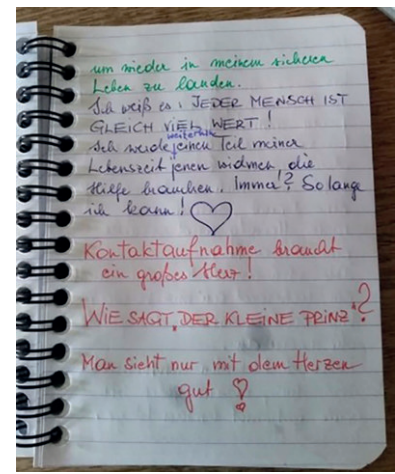 um wieder in meinem sicheren
Leben zu landen.
Ich weiß es: JEDER MENSCH IST
GLEICH VIEL WERT!
weiterhin
Ich werde einen Teil meiner
Lebenszeit jenen widmen, die
Hilfe brauchen. Immer? Solange
ich kann! ♡
Kontaktaufnahme braucht
ein großes Herz!
WIE SAGT „DER KLEINE PRINZ"?
Man sieht nur mit dem Herzen
gut